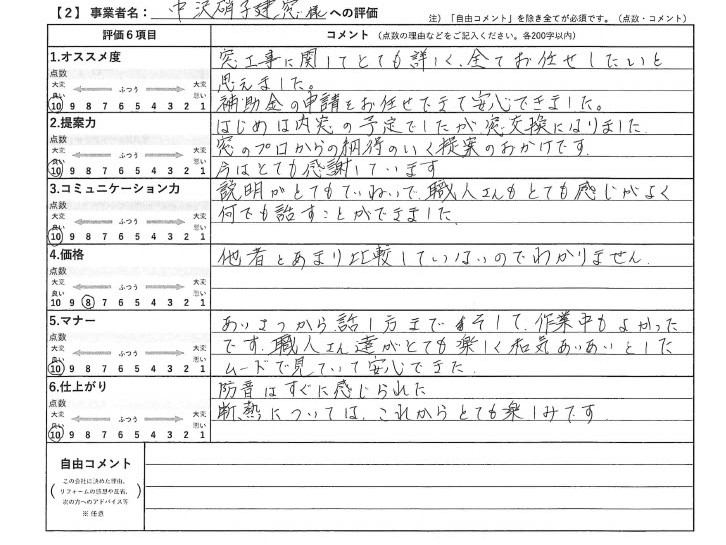 【2】事業者名： 中沢硝子建窓様 への評価
注）「自由コメント」を除き全てが必須です。（点数・コメント）
評価６項目 コメント （点数の理由などをご記入ください。各200字以内）
1.オススメ度
点数
大変 良い ふつう 大変 悪い
10 9 8 7 6 5 4 3 2 1
窓工事に関してとても詳しく、全てお任せしたいと
思えました。
補助金の申請もお任せできて安心できました。
2.提案力
点数
大変 良い ふつう 大変 悪い
10 9 8 7 6 5 4 3 2 1
はじめは内窓の予定でしたが窓交換になりました.
窓のプロからの納得のいく提案のおかげです.
今はとても感謝しています
3.コミュニケーション力
点数
大変 良い ふつう 大変 悪い
10 9 8 7 6 5 4 3 2 1
説明がとてもていねいで、職人さんもとても感じがよく
何でも話すことができました.
4.価格
点数
大変 良い ふつう 大変 悪い
10 9 8 7 6 5 4 3 2 1
他者とあまり比較していないのでわかりません.
5.マナー
点数
大変 良い ふつう 大変 悪い
10 9 8 7 6 5 4 3 2 1
あいさつから、話し方まで そして、作業中もよかった
です。職人さん達がとても楽しく和気あいあいとした
ムードで見ていて安心できた.
6.仕上がり
点数
大変 良い ふつう 大変 悪い
10 9 8 7 6 5 4 3 2 1
防音はすぐに感じられた
断熱については、これからとても楽しみです
自由コメント
（この会社に決めた理由、
リフォームの感想や反省、
次の方へのアドバイス等）
※ 任意